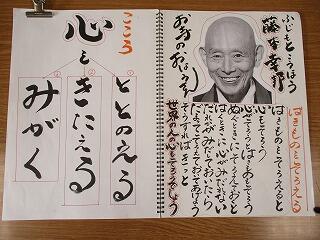 ふじもとこうほう
藤本幸邦
お寺のおぼうさん
はきものをそろえる
はきものをそろえると
心もそろう
心がそろうとはきものもそろう
ぬぐときにそろえておくと
はくときに心がみだれない
だれかがみだしておいたら
だまってそろえておいてあげよう
そうすればきっと
世界の人の心もそろうでしょう
こころ
心を
① ととのえる
② きたえる
③ みがく